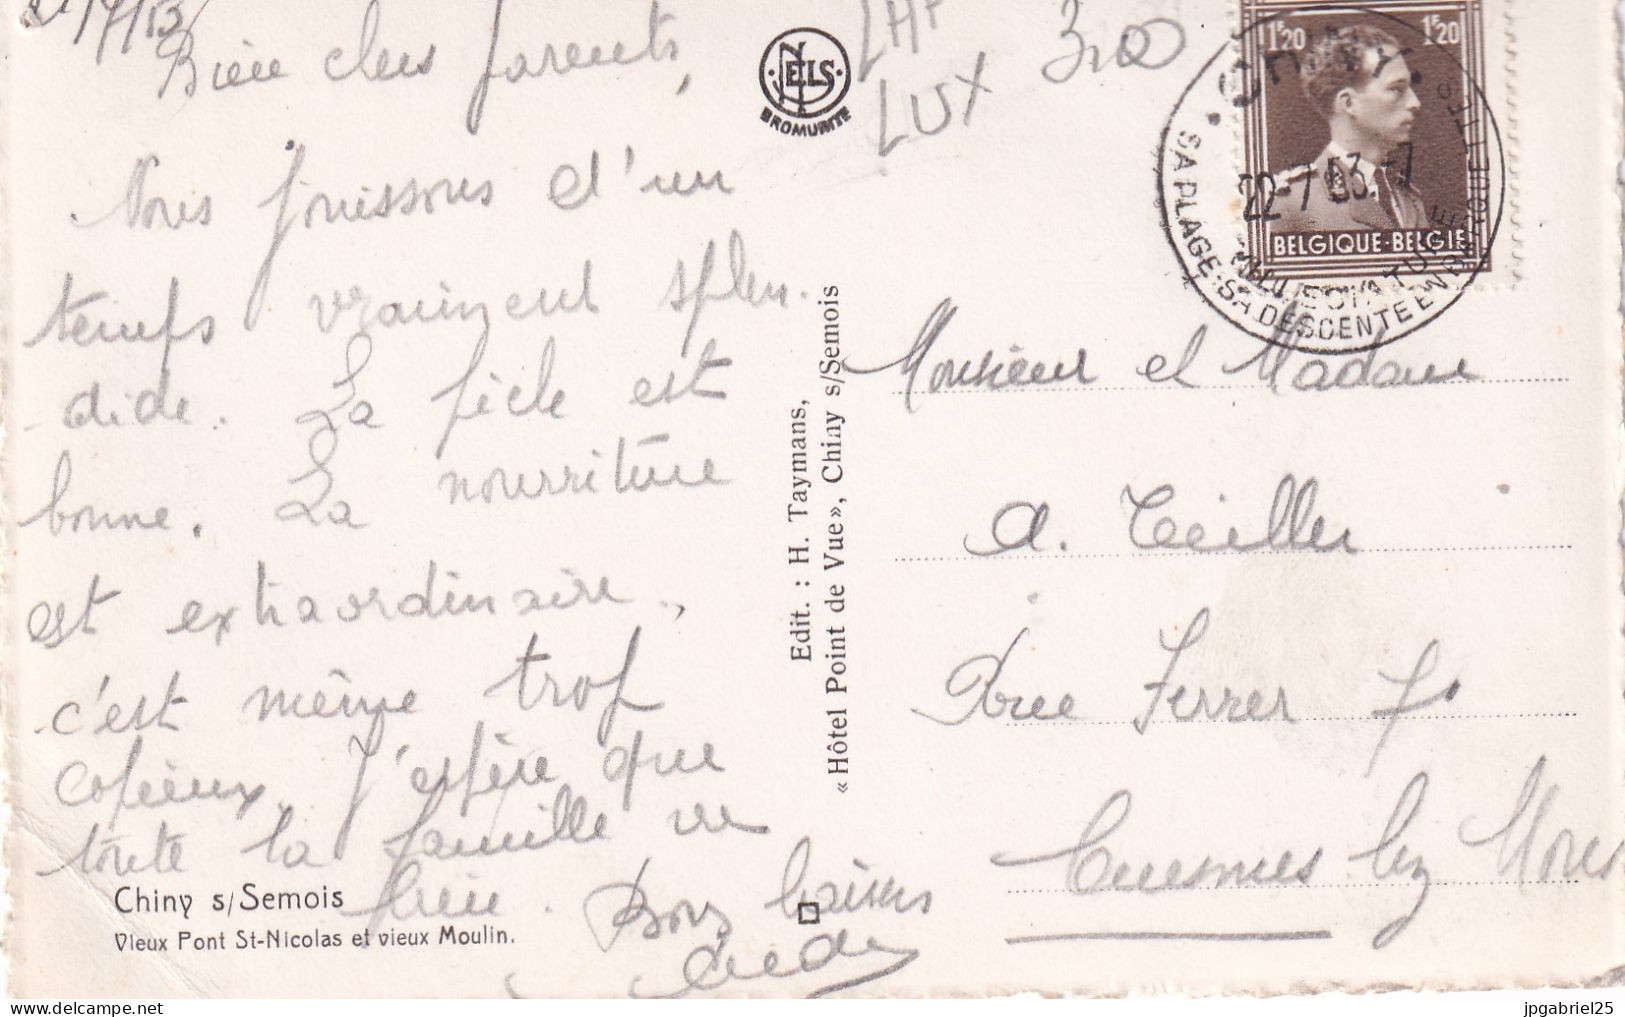 Bien chers parents,
Nous jouissons d'un
temps vraiment splen-
dide. La pêche est
bonne. La nourriture
est extraordinaire,
c'est même trop
copieux. J'espère que
toute la famille va
bien. Bons baisers
Chiny s/Semois
Vieux Pont St-Nicolas et vieux Moulin.
NELS
BROMURITE
Edit. : H. Taymans,
«Hôtel Point de Vue», Chiny s/Semois
LUX
300
1F20 1F20
BELGIQUE-BELGIË
CHINY
22-7 53.-7
SA PLAGE-SA DESCENTE EN BARQUE
Monsieur et Madame
A. Teiller
Rue Ferrer 7
Cuesmes lez Mons
jpgabriel25